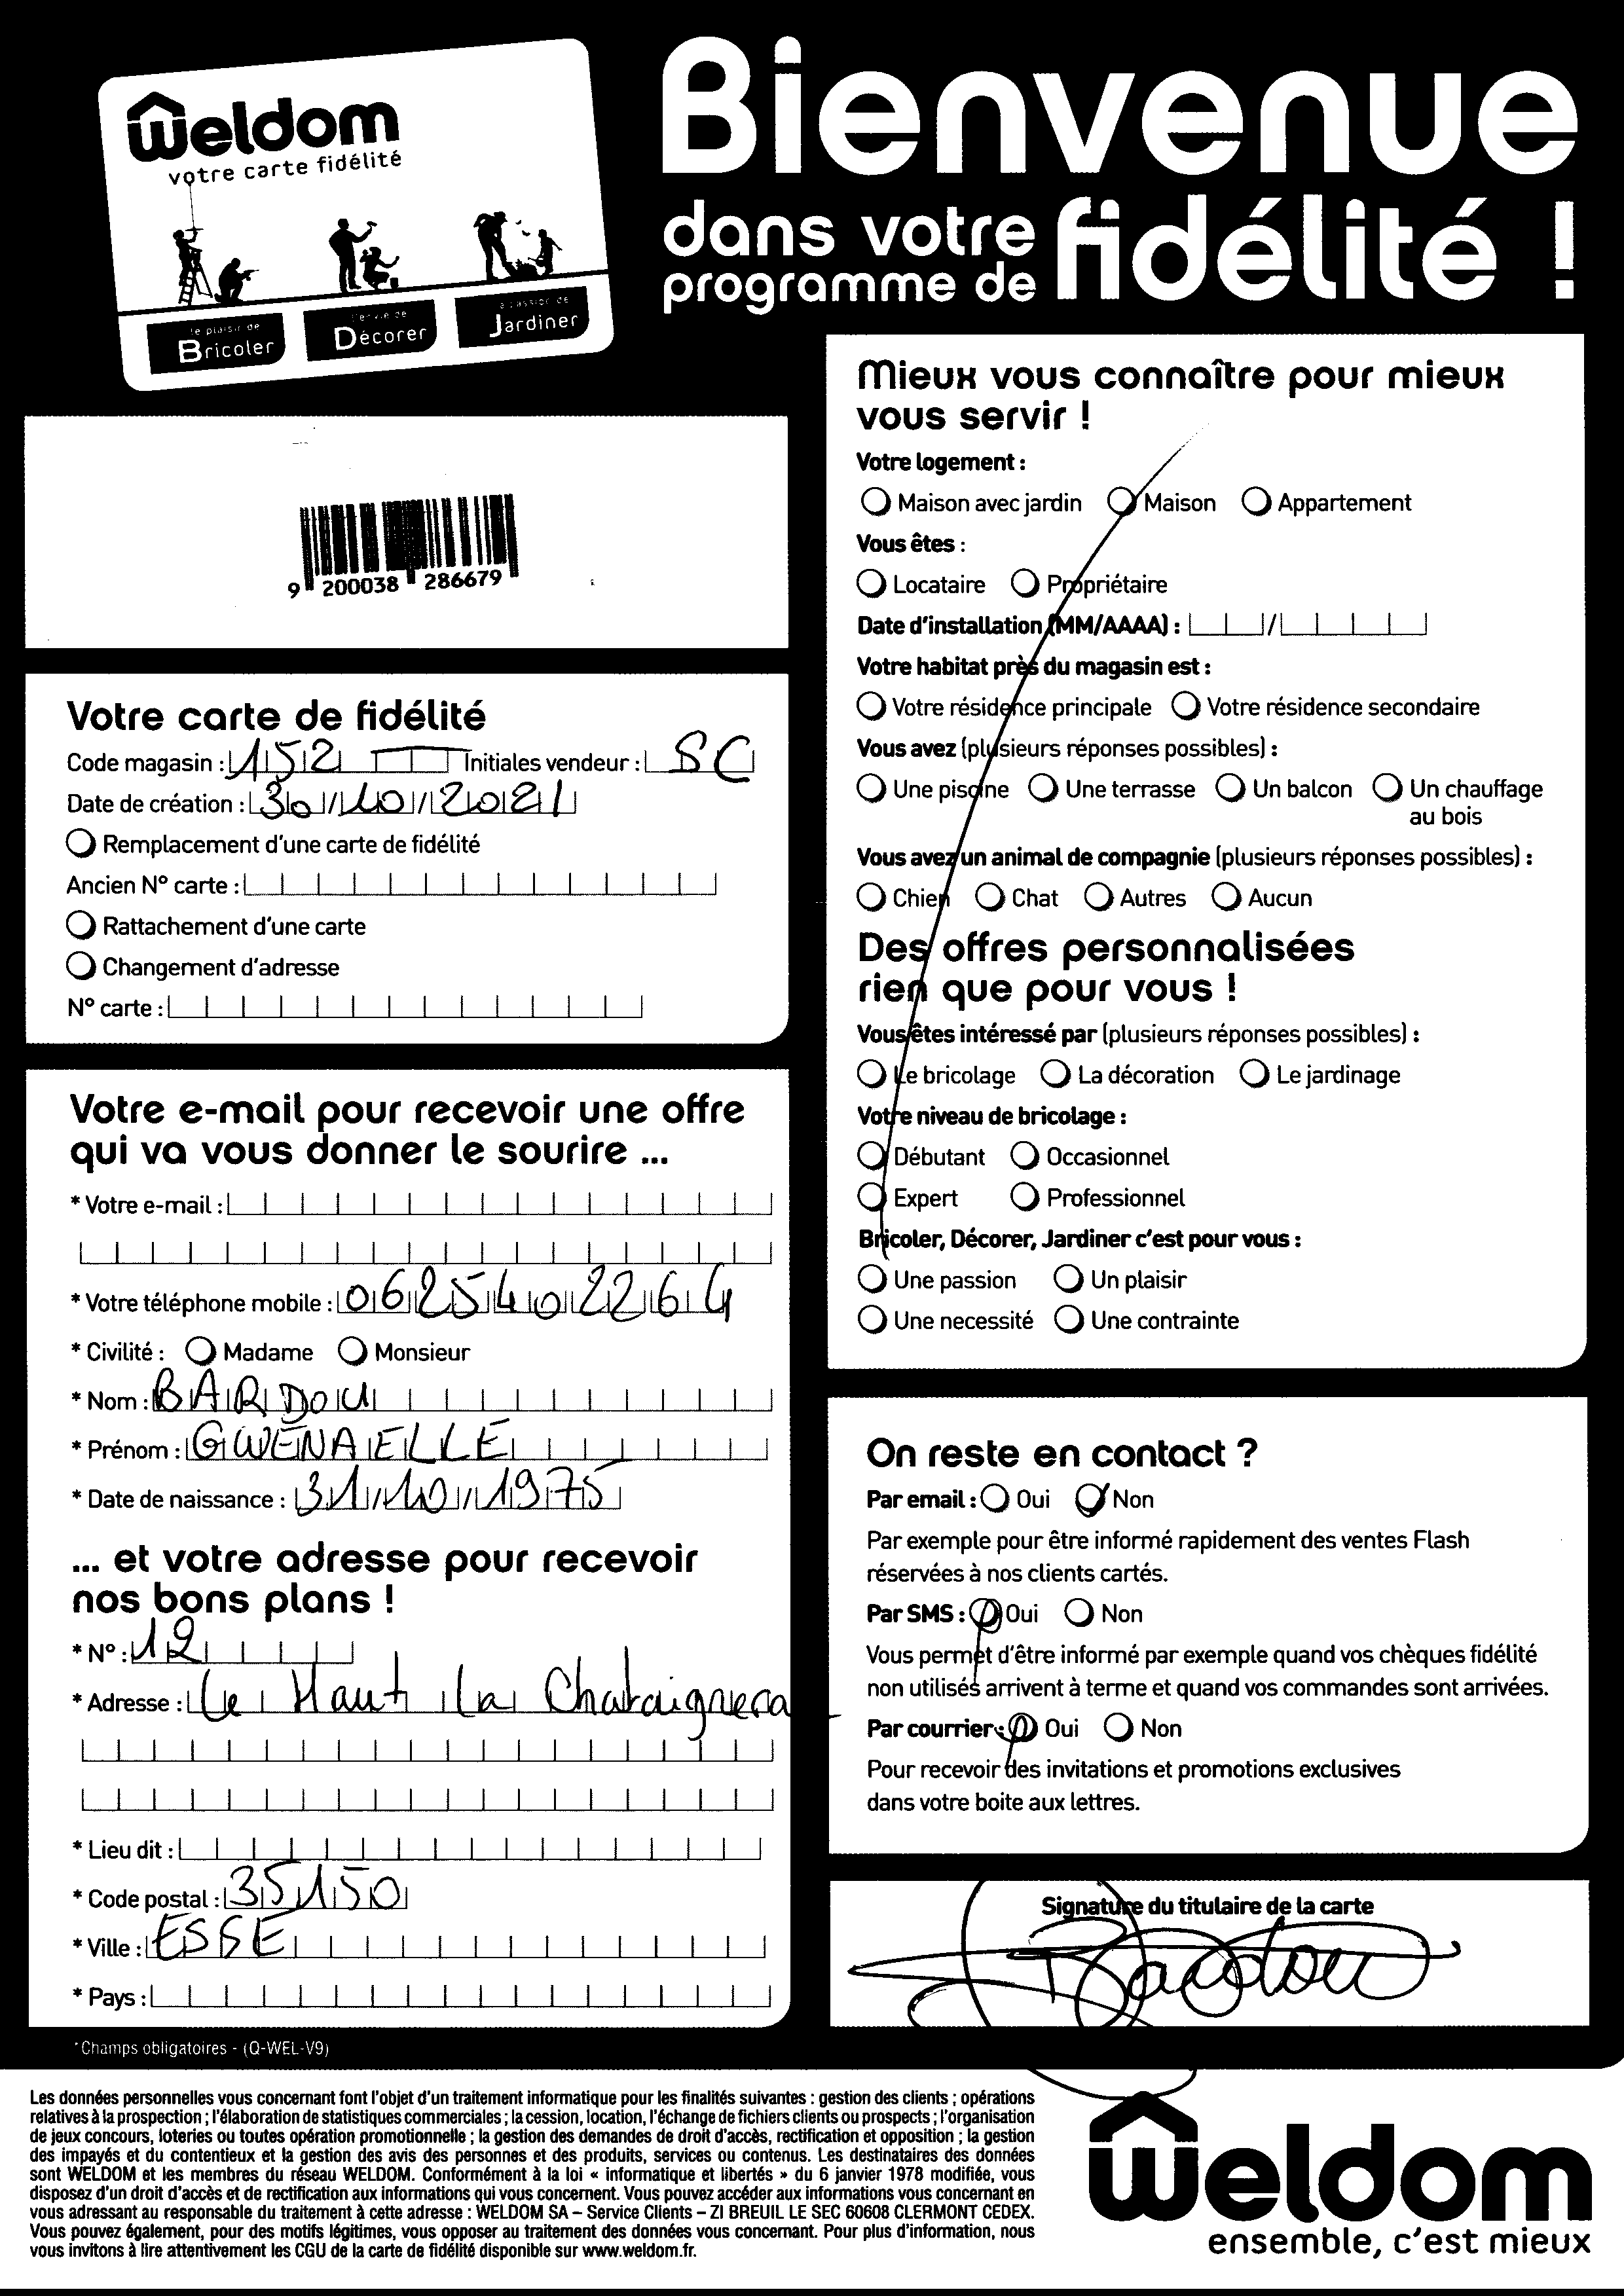 Weldom
votre carte fidélité
le plaisir de
Bricoler
l'envie de
Décorer
la passion de
Jardiner
Bienvenue
dans votre
programme de
fidélité !
9 200038 286679
Votre carte de fidélité
Code magasin : 152 Initiales vendeur : SC
Date de création : 30/10/2021
Remplacement d'une carte de fidélité
Ancien N° carte :
Rattachement d'une carte
Changement d'adresse
N° carte :
Votre e-mail pour recevoir une offre
qui va vous donner le sourire ...
* Votre e-mail :
* Votre téléphone mobile : 0625402264
* Civilité : Madame Monsieur
* Nom : BARDOU
* Prénom : GWENAELLE
* Date de naissance : 31/10/1975
... et votre adresse pour recevoir
nos bons plans !
* N° : 12
* Adresse : Le Haut la Chataignera
* Lieu dit :
* Code postal : 35150
* Ville : ESSE
* Pays :
*Champs obligatoires - (Q-WEL-V9)
Mieux vous connaître pour mieux
vous servir !
Votre logement :
Maison avec jardin Maison Appartement
Vous êtes :
Locataire Propriétaire
Date d'installation (MM/AAAA) : /
Votre habitat près du magasin est :
Votre résidence principale Votre résidence secondaire
Vous avez (plusieurs réponses possibles) :
Une piscine Une terrasse Un balcon Un chauffage
au bois
Vous avez un animal de compagnie (plusieurs réponses possibles) :
Chien Chat Autres Aucun
Des offres personnalisées
rien que pour vous !
Vous êtes intéressé par (plusieurs réponses possibles) :
Le bricolage La décoration Le jardinage
Votre niveau de bricolage :
Débutant Occasionnel
Expert Professionnel
Bricoler, Décorer, Jardiner c'est pour vous :
Une passion Un plaisir
Une necessité Une contrainte
On reste en contact ?
Par email : Oui Non
Par exemple pour être informé rapidement des ventes Flash
réservées à nos clients cartés.
Par SMS : Oui Non
Vous permet d'être informé par exemple quand vos chèques fidélité
non utilisés arrivent à terme et quand vos commandes sont arrivées.
Par courrier : Oui Non
Pour recevoir des invitations et promotions exclusives
dans votre boite aux lettres.
Signature du titulaire de la carte
Bardou
Les données personnelles vous concernant font l'objet d'un traitement informatique pour les finalités suivantes : gestion des clients ; opérations
relatives à la prospection ; l'élaboration de statistiques commerciales ; la cession, location, l'échange de fichiers clients ou prospects ; l'organisation
de jeux concours, loteries ou toutes opération promotionnelle ; la gestion des demandes de droit d'accès, rectification et opposition ; la gestion
des impayés et du contentieux et la gestion des avis des personnes et des produits, services ou contenus. Les destinataires des données
sont WELDOM et les membres du réseau WELDOM. Conformément à la loi « informatique et libertés » du 6 janvier 1978 modifiée, vous
disposez d'un droit d'accès et de rectification aux informations qui vous concernent. Vous pouvez accéder aux informations vous concernant en
vous adressant au responsable du traitement à cette adresse : WELDOM SA – Service Clients – ZI BREUIL LE SEC 60608 CLERMONT CEDEX.
Vous pouvez également, pour des motifs légitimes, vous opposer au traitement des données vous concernant. Pour plus d'information, nous
vous invitons à lire attentivement les CGU de la carte de fidélité disponible sur www.weldom.fr.
Weldom
ensemble, c'est mieux